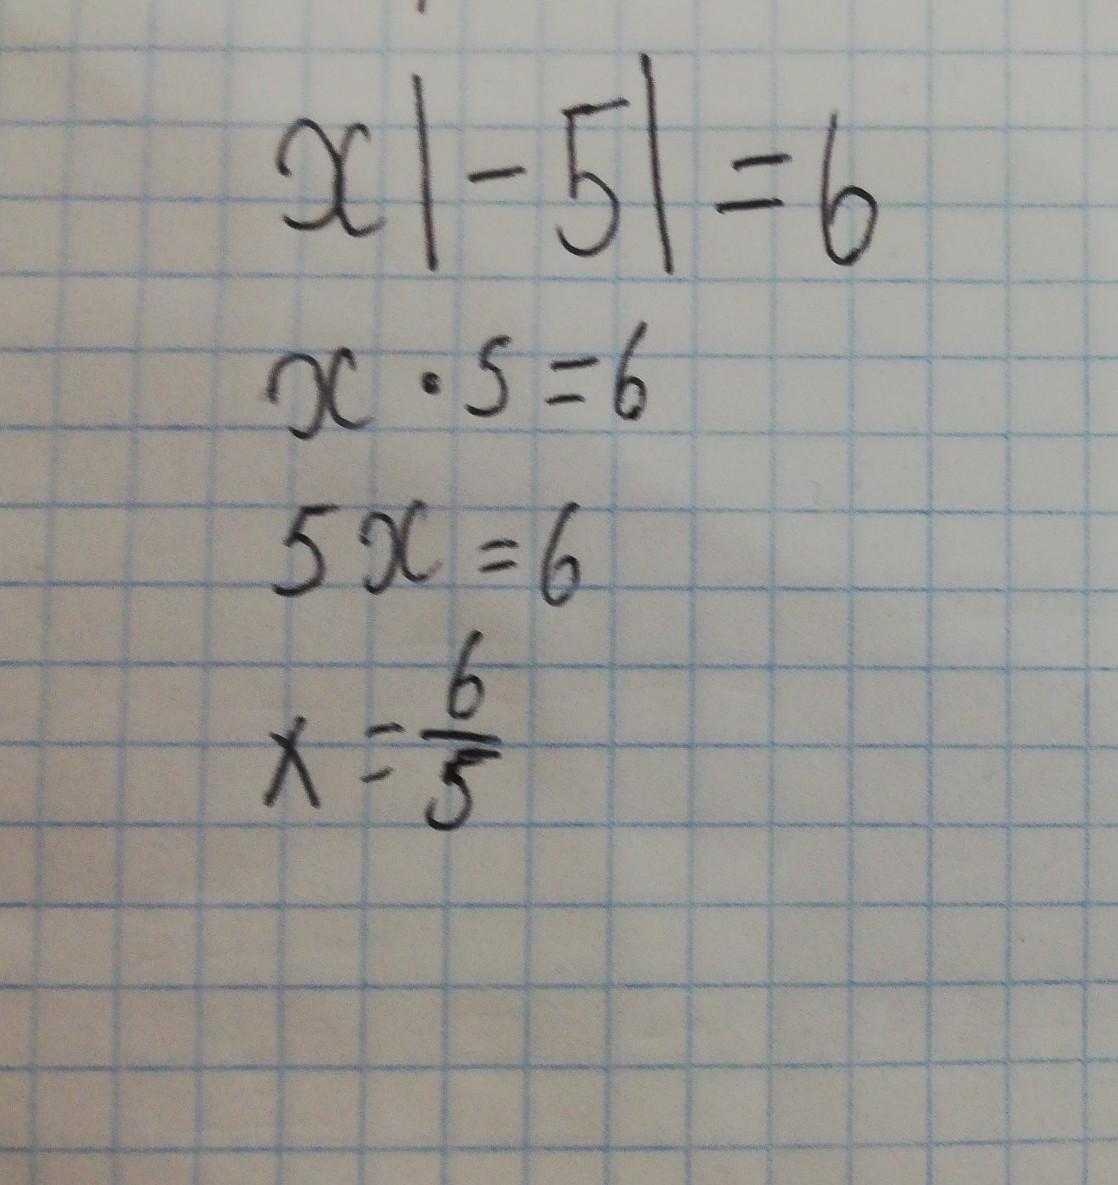 x|-5|=6
x·5=6
5x=6
x=6/5